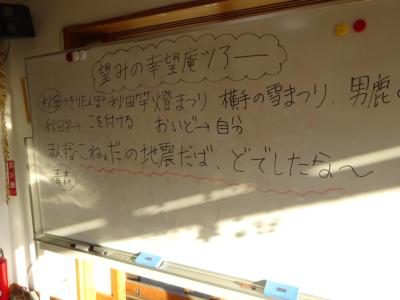 望みの幸望庵ツアー
秋田 きりたんぽ 秋田竿燈まつり 横手の雪まつり、男鹿
秋田弁→こを付ける おいど→自分
まんずなこねぇだの地震だば、どでしたな～
青森